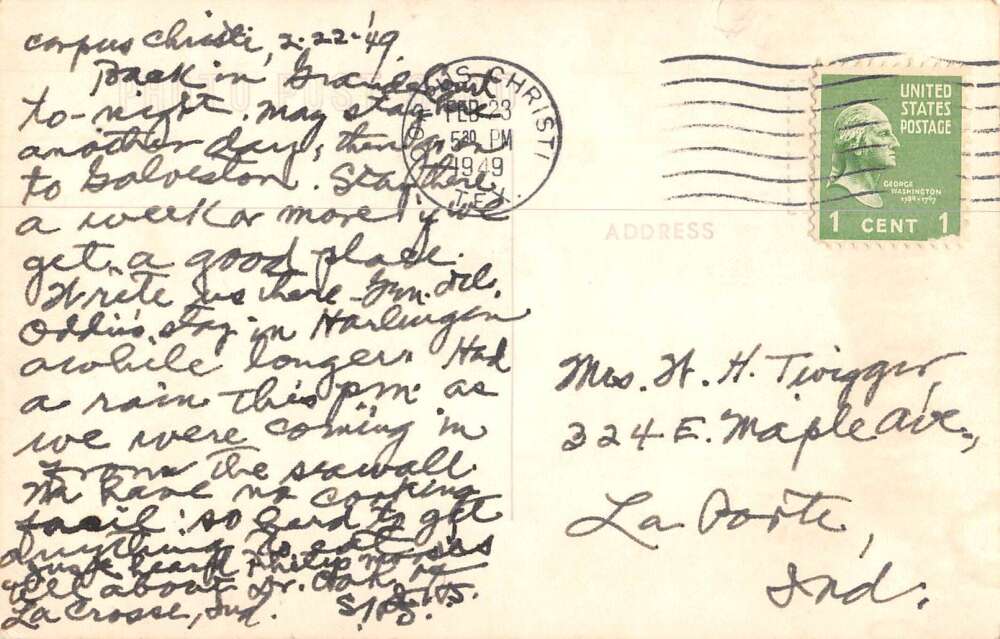 Corpus Christi, 2-22-'49
Back in Grande Court
to-night. May stay here
another day, then on
to Galveston. Stay there
a week or more if we
get a good place.
Write us there Gen. Del.
Oddies stay in Harlingen
awhile longer. Had
a rain this pm. as
we were coming in
from the seawall.
We have no cooking
facil. so hard to get
anything to eat.
Just heard Philip
tell about Dr.
LaCrosse, Ind.
PHOTO POST
CORPUS CHRISTI
FEB 23
5 30 PM
1949
TEX.
UNITED
STATES
POSTAGE
GEORGE
WASHINGTON
1789-1797
1 CENT 1
ADDRESS
Mrs. W. H. Twigger,
324 E. Maple Ave.,
La Porte,
Ind.